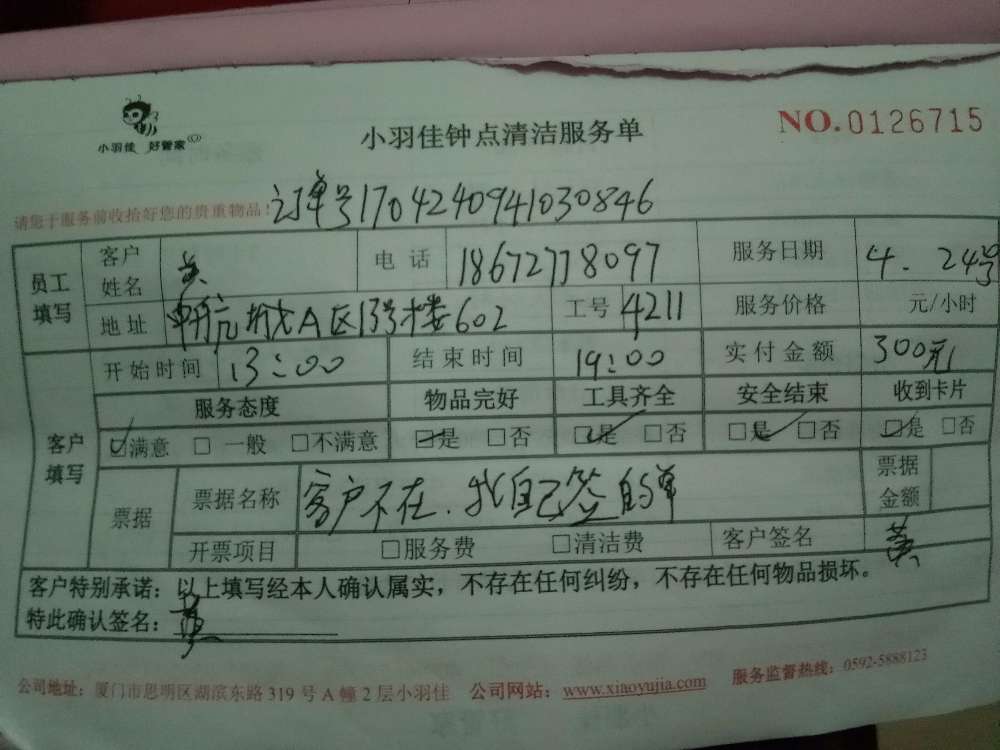 小羽佳 好管家
小羽佳钟点清洁服务单
NO.0126715
请您于服务前收拾好您的贵重物品！ 订单号1704240941030846
员工填写 客户姓名 黄 电话 18672778097 服务日期 4.24号
地址 中航城A区13号楼602 工号 4211 服务价格 元/小时
客户填写 开始时间 13:00 结束时间 19:00 实付金额 300元
服务态度 物品完好 工具齐全 安全结束 收到卡片
☑满意 □一般 □不满意 ☑是 □否 ☑是 □否 ☑是 □否 ☑是 □否
票据 票据名称 客户不在.我自己签的单 票据金额
开票项目 □服务费 □清洁费 客户签名 黄
客户特别承诺：以上填写经本人确认属实，不存在任何纠纷，不存在任何物品损坏。
特此确认签名：黄
公司地址：厦门市思明区湖滨东路319号A幢2层小羽佳 公司网站：www.xiaoyujia.com 服务监督热线：0592-5888123